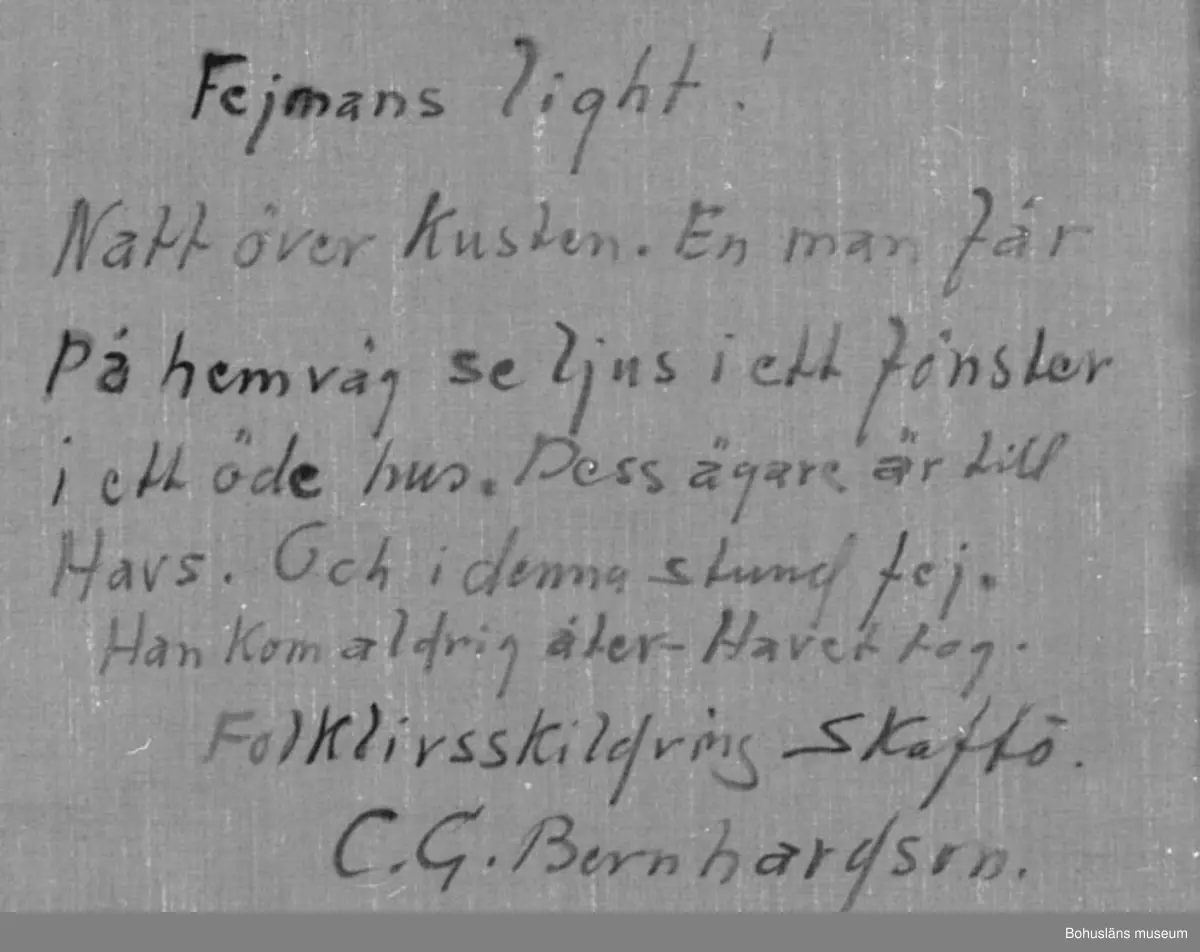 Fejmans light!
Natt över Kusten. En man får
På hemväg se ljus i ett fönster
i ett öde hus. Dess ägare är till
Havs. Och i denna stund fej.
Han Kom aldrig åter- Havet tog.
Folklivsskildring Skaftö.
C.G. Bernhardson.
Bohusläns museum